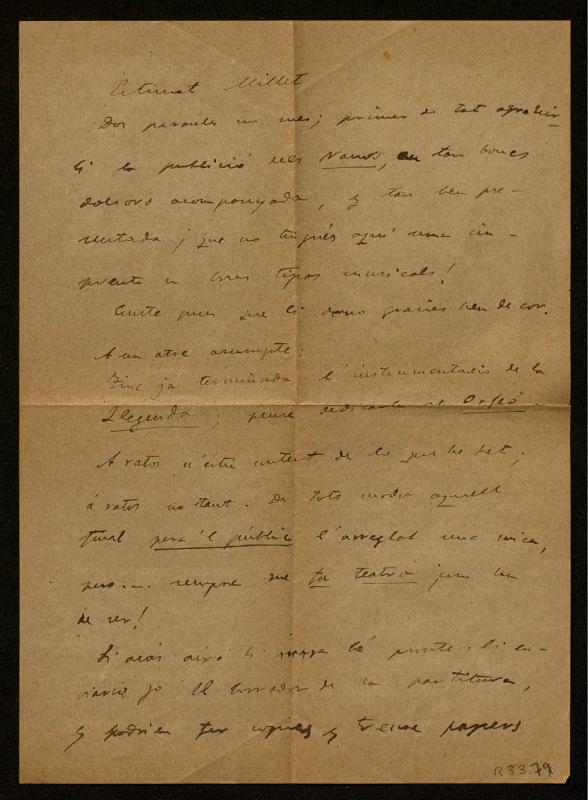 Estimat Millet
Dos paraules no mes; primer de tot agrahir-
li la publicació dels Nanos, en tan bones
acompanyada, y tan ben pre-
sentada; que no tingués aquí una im-
prenta en bons tipos musicals!
Conste pues que li dono gracies ben de cor.
A un atre asumpte:
Tinc ja terminada l'instrumentació de la
Llegenda; penso dedicarla al Orfeó.
A ratos n'estic content de lo que he fet;
á ratos no tant. De tots modos aquell
final pera'l públic l'arreglat una mica,
pero.... sempre que fa teatro
de ser!
Si acás aixó li bé punte. li en-
viaria jo el borrador de la partitura,
y podrien fer copies y treure papers
R 83.79